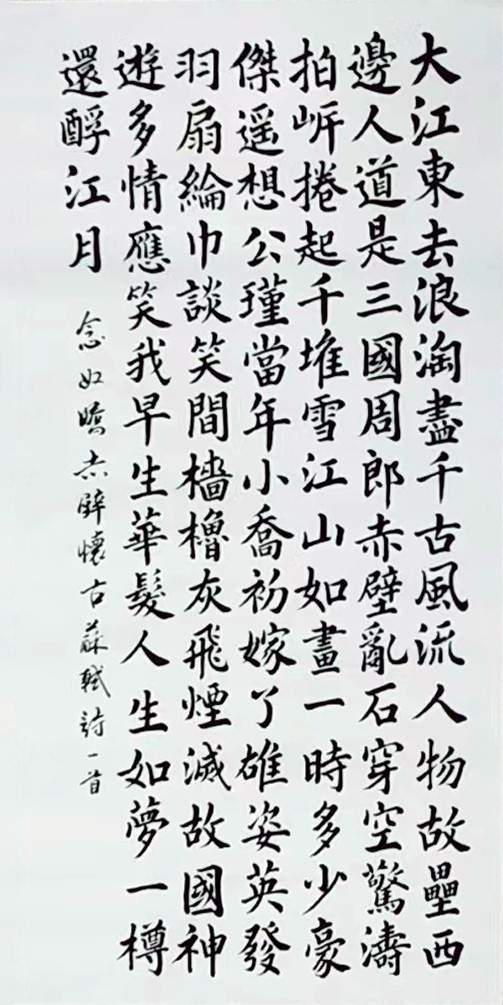 大江東去浪淘盡千古風流人物故壘西
邊人道是三國周郎赤壁亂石穿空驚濤
拍岍捲起千堆雪江山如畫一時多少豪
傑遥想公瑾當年小喬初嫁了雄姿英發
羽扇綸巾談笑間檣櫓灰飛煙滅故國神
遊多情應笑我早生華髮人生如夢一樽
還酹江月
念奴嬌赤壁懷古蘇軾詩一首